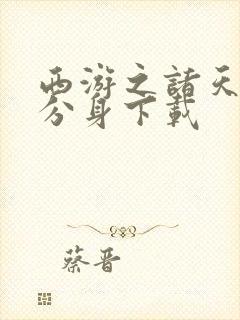 西游之諸天
分身下載
蔡晋